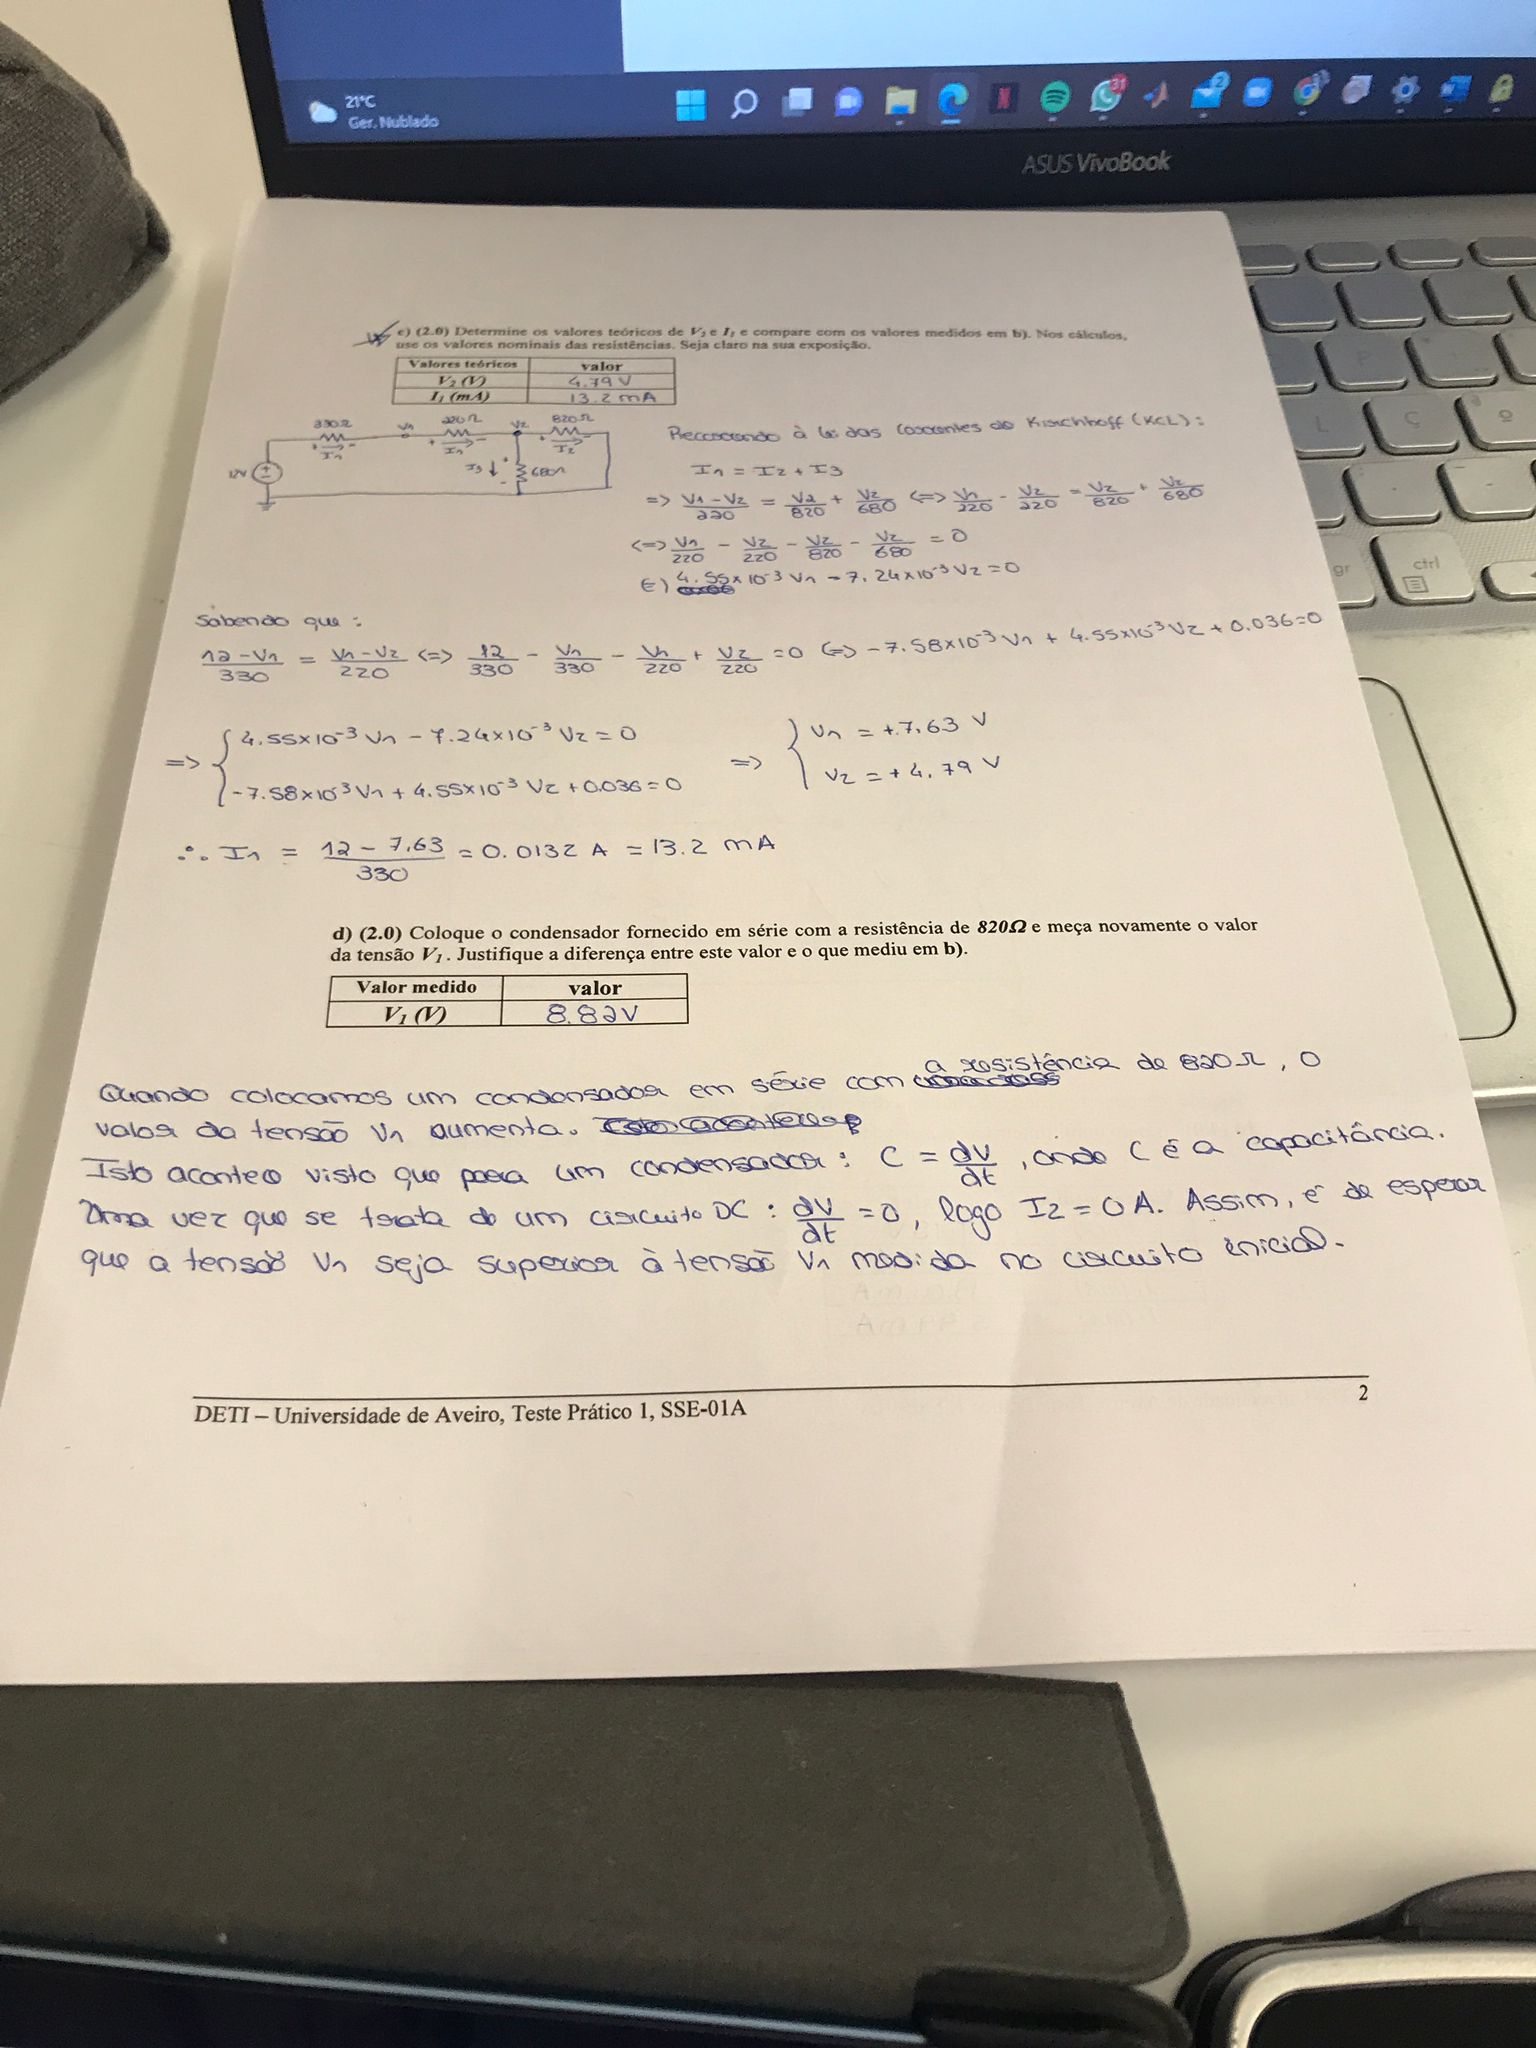 21°C
Ger. Nublado
31
2
ASUS VivoBook
c) (2.0) Determine os valores teóricos de V2 e I1 e compare com os valores medidos em b). Nos cálculos,
use os valores nominais das resistências. Seja claro na sua exposição.
Valores teóricos valor
V2 (V) 4.79 V
I1 (mA) 13.2 mA
330Ω V1 220Ω V2 820Ω
+ I1 - + I1 - + I2 -
12V I3 680Ω
Recorrendo à lei das correntes de Kirchhoff (KCL):
I1 = I2 + I3
=> V1-V2/220 = V2/820 + V2/680 <=> V1/220 - V2/220 = V2/820 + V2/680
<=> V1/220 - V2/220 - V2/820 - V2/680 = 0
<=> 4.55×10^-3 V1 - 7.24×10^-3 V2 = 0
Sabendo que:
12-V1/330 = V1-V2/220 <=> 12/330 - V1/330 - V1/220 + V2/220 = 0 <=> -7.58×10^-3 V1 + 4.55×10^-3 V2 + 0.036=0
=> { 4.55×10^-3 V1 - 7.24×10^-3 V2 = 0 => { V1 = +7.63 V
-7.58×10^-3 V1 + 4.55×10^-3 V2 + 0.036=0 V2 = +4.79 V
∴ I1 = 12 - 7.63/330 = 0.0132 A = 13.2 mA
d) (2.0) Coloque o condensador fornecido em série com a resistência de 820Ω e meça novamente o valor
da tensão V1. Justifique a diferença entre este valor e o que mediu em b).
Valor medido valor
V1 (V) 8.82V
Quando colocamos um condensador em série com a resistência de 820Ω, o
valor da tensão V1 aumenta.
Isto acontece visto que para um condensador: C = dV/dt, onde C é a capacitância.
Uma vez que se trata de um circuito DC: dV/dt = 0, logo I2 = 0 A. Assim, é de esperar
que a tensão V1 seja superior à tensão V1 medida no circuito inicial.
DETI – Universidade de Aveiro, Teste Prático 1, SSE-01A 2
gr
ctrl